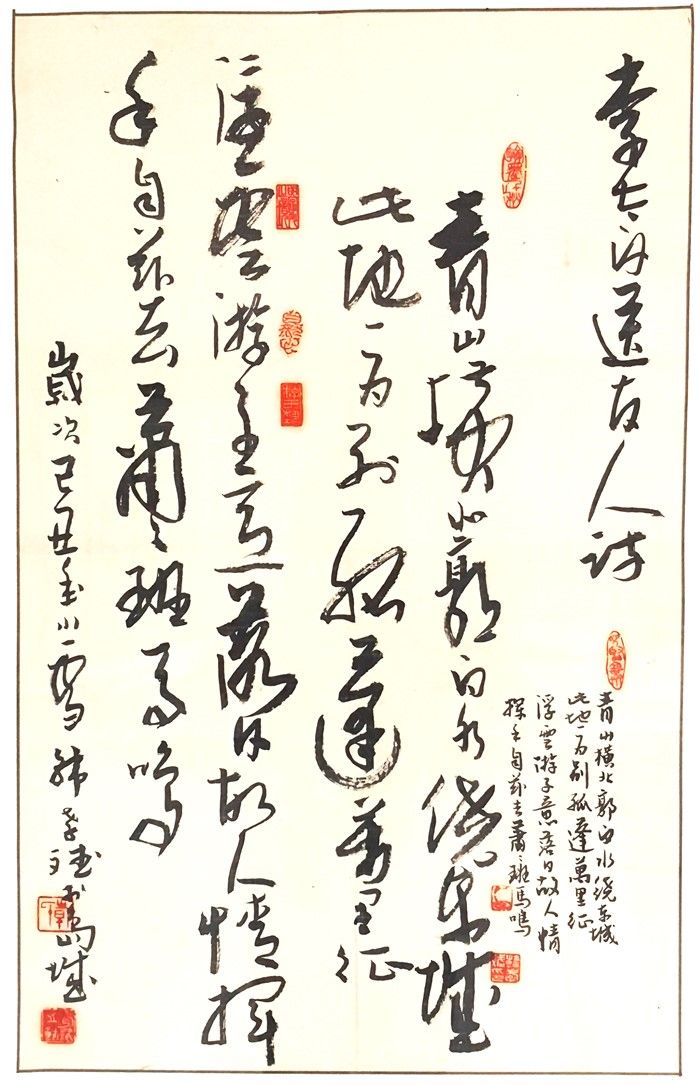 李太白送友人詩
青山橫北郭白水繞東城
此地一为別孤蓬萬里征
浮雲游子意落日故人情揮
手自茲去蕭々班馬鳴
歲次己丑年小雪韩城
青山橫北郭白水繞东城
此地一为别孤蓬萬里征
浮雲游子意落日故人情
揮手自茲去蕭々班馬鳴